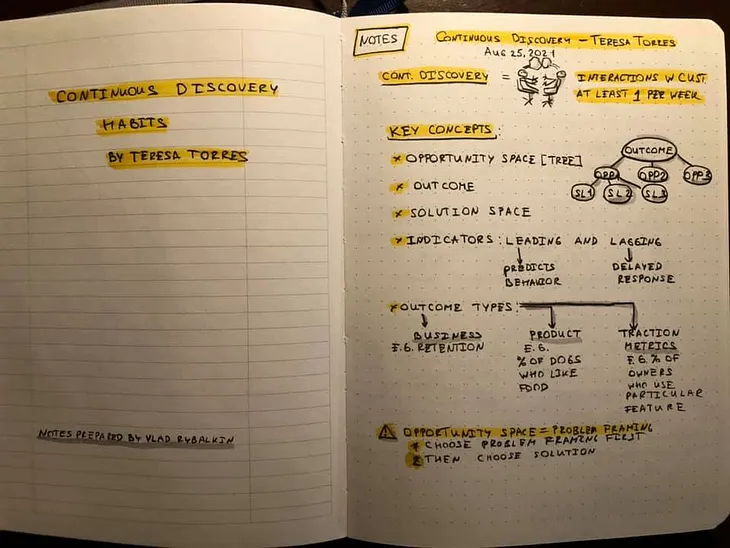 CONTINUOUS DISCOVERY
HABITS
BY TERESA TORRES
NOTES PREPARED BY VLAD RYBALKIN
NOTES
CONTINUOUS DISCOVERY - TERESA TORRES
AUG 25, 2021
CONT. DISCOVERY =
INTERACTIONS W CUST
AT LEAST 1 PER WEEK
KEY CONCEPTS:
* OPPORTUNITY SPACE [TREE]
OUTCOME
OPP1 OPP2 OPP3
SL1 SL2 SL3
* OUTCOME
* SOLUTION SPACE
* INDICATORS: LEADING AND LAGGING
PREDICTS
BEHAVIOR
DELAYED
RESPONSE
* OUTCOME TYPES:
BUSINESS
E.G. RETENTION
PRODUCT
E.G.
% OF DOGS
WHO LIKE
FOOD
TRACTION
METRICS
E.G. % OF
OWNERS
WHO USE
PARTICULAR
FEATURE
⚠ OPPORTUNITY SPACE = PROBLEM FRAMING
1 CHOOSE PROBLEM FRAMING FIRST
2 THEN CHOOSE SOLUTION